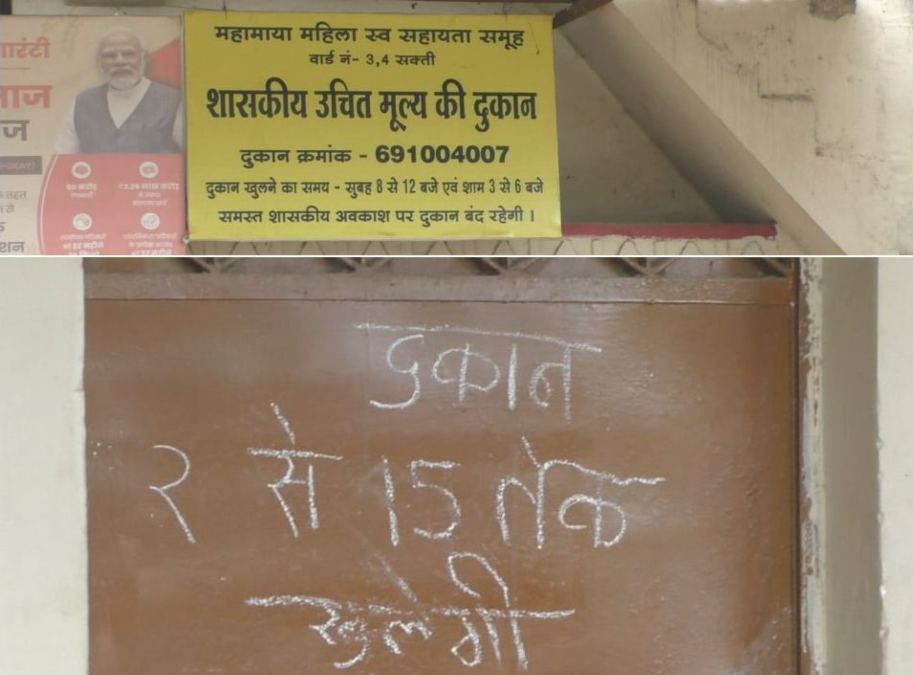 गारंटी
महामाया महिला स्व सहायता समूह
वार्ड नं- 3,4 सक्ती
शासकीय उचित मूल्य की दुकान
दुकान क्रमांक - 691004007
दुकान खुलने का समय - सुबह 8 से 12 बजे एवं शाम 3 से 6 बजे
समस्त शासकीय अवकाश पर दुकान बंद रहेगी ।
दुकान
२ से 15 तक
खुलेगी